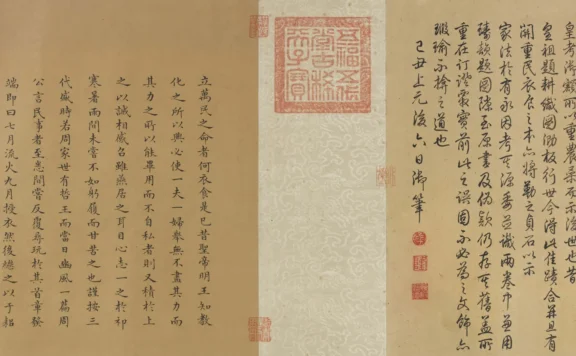 皇考御額所以重農桑而示後世也昔
皇祖題耕織圖鏤板行世今得此佳蹟合並且有
關重民衣食之本亦將勒之貞石以示
家法於有永因考其源委並識兩卷中兼用
璹韻題圖隙至原書及偽款仍存其舊蓋所
重在訂證覈實前此之誤固不必為之文飾亦
瑕瑜不掩之道也
己丑上元後六日御筆
五福五代堂古稀天子寶
立萬民之命者何衣食是已昔聖帝明王知教
化之所以興必使一夫一婦舉無不盡其力而
其力之所以能畢用而不自私者則又積於上
之以誠相感召雖燕居之耳目心志一之於祁
寒暑雨間未嘗不如躬履而甘苦之也謹按三
代盛時若周家世有哲王而當日豳風一篇周
公言民事者至悉間嘗反復尋玩於其首章發
端即曰七月流火九月授衣然後繼之以于耜